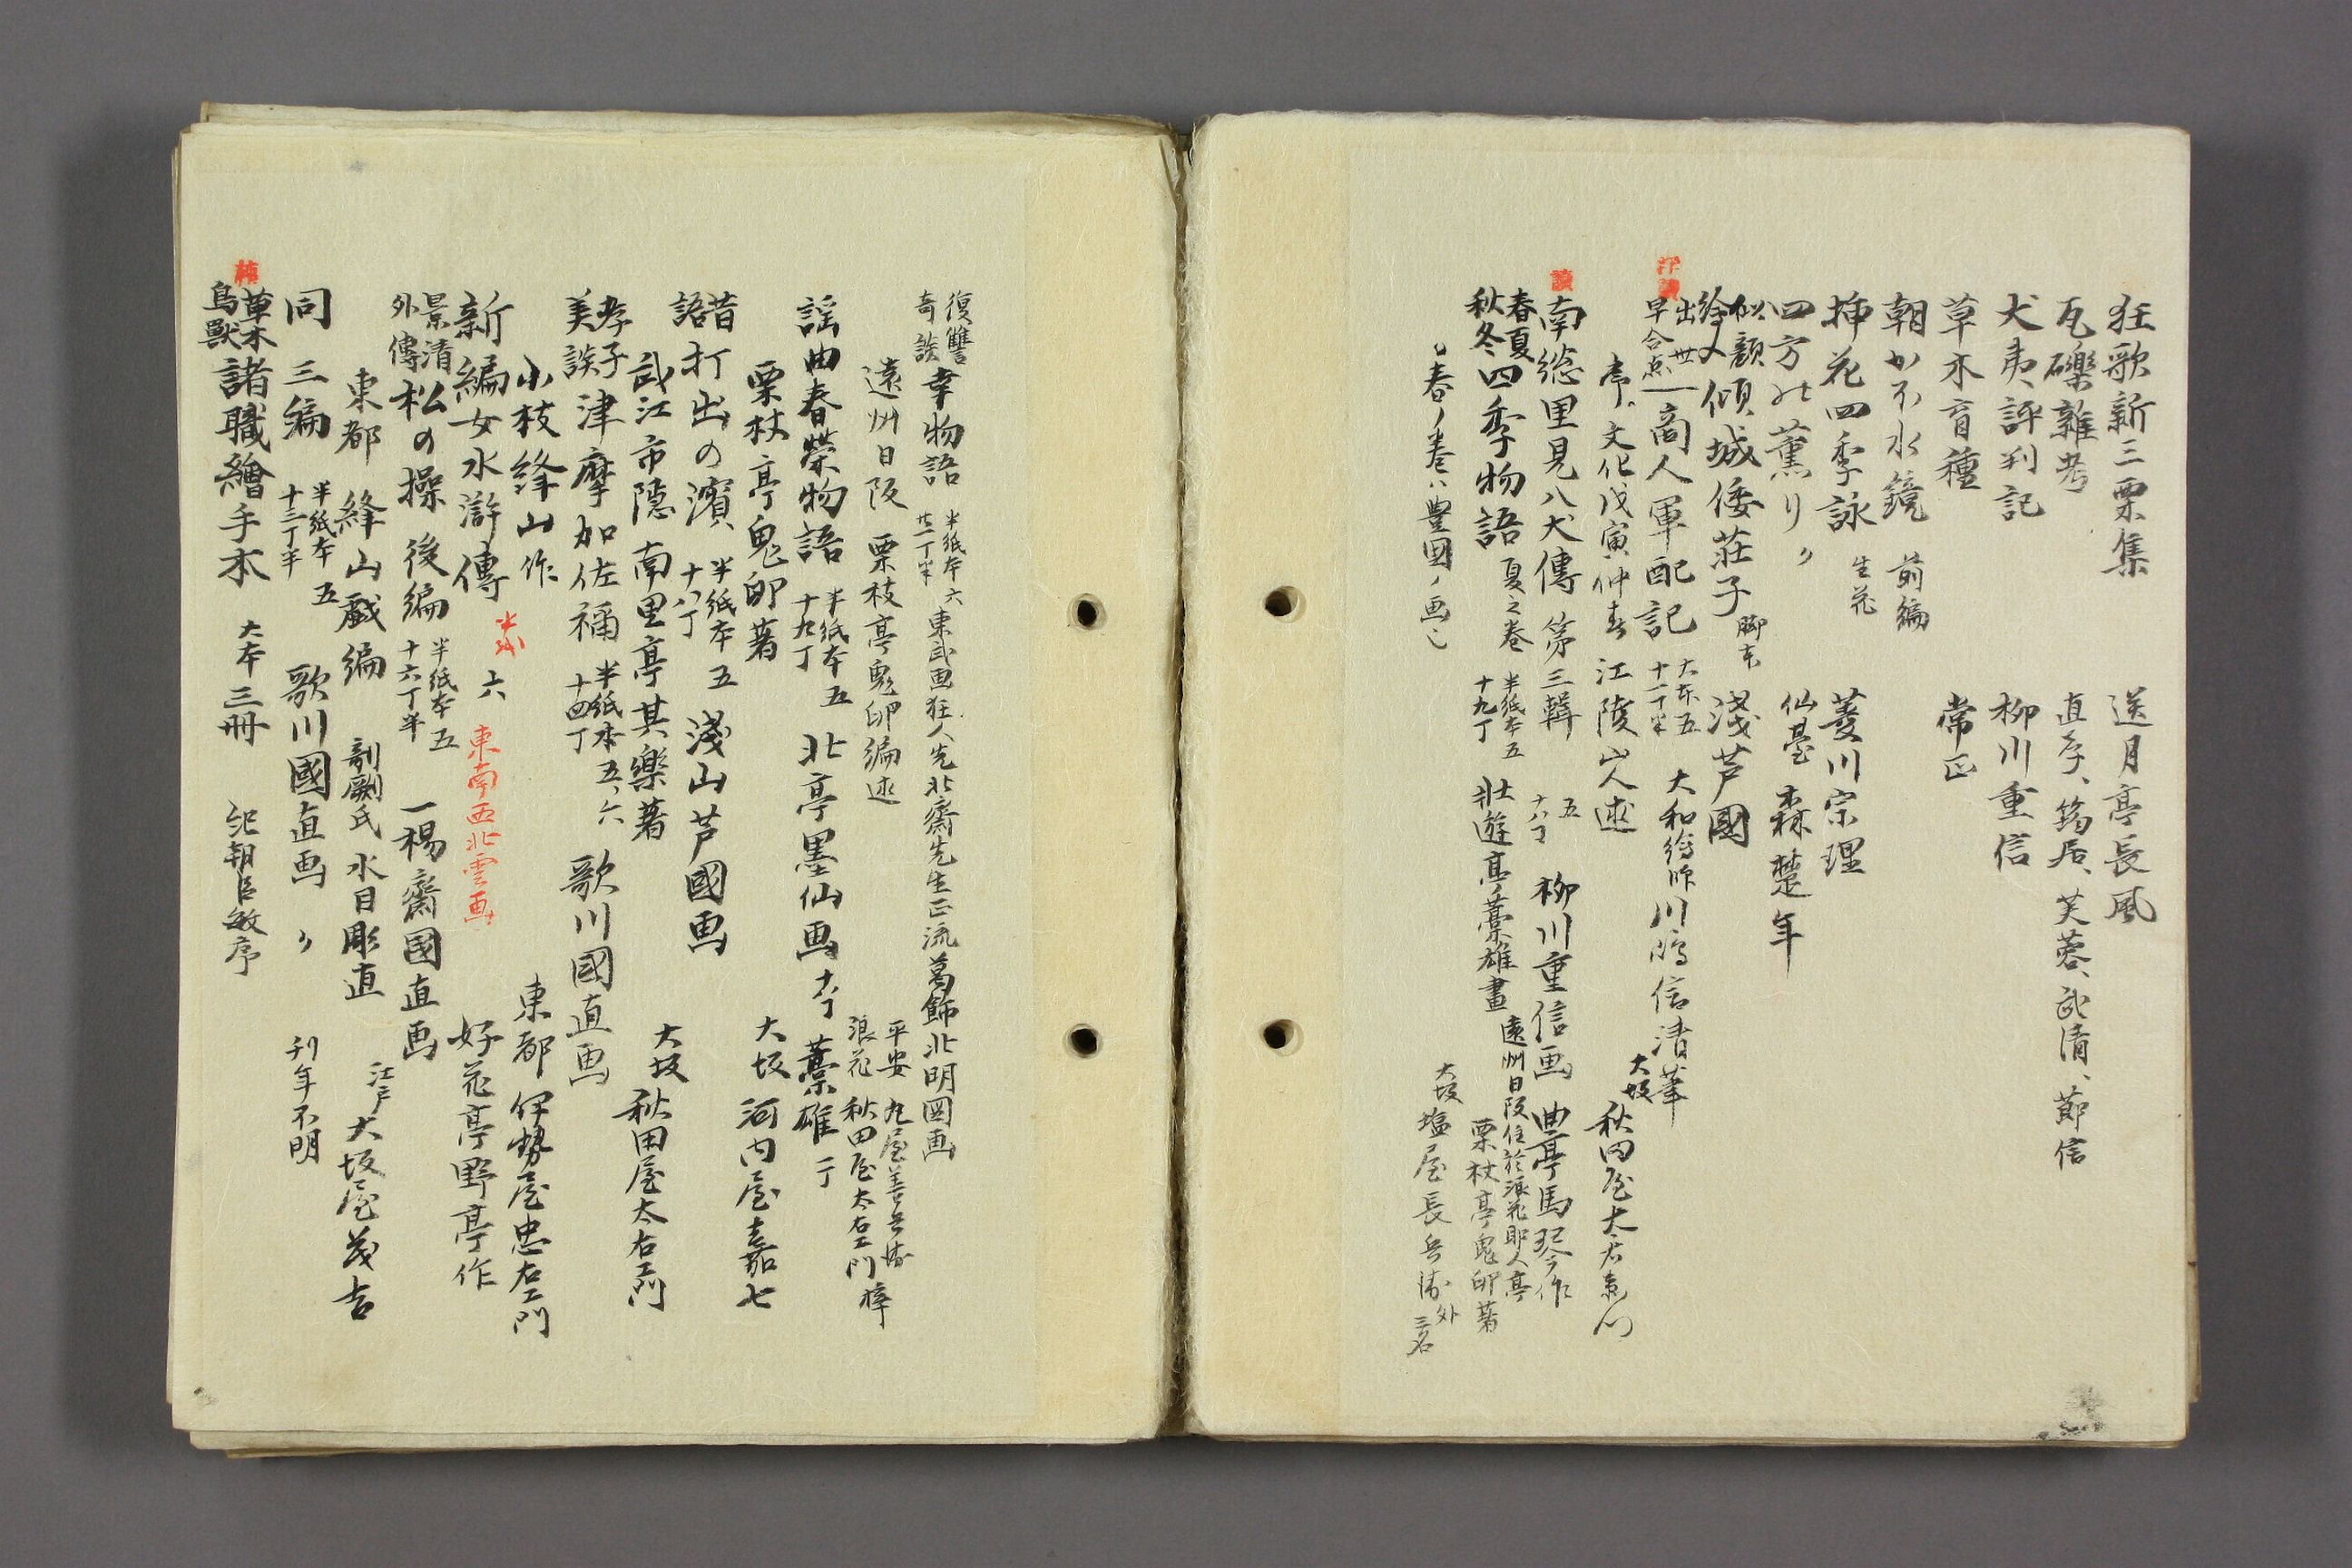 狂歌新三栗集　送月亭長風
瓦礫雜考　直彦、筠居、芙蓉、武清、節信
犬夷評判記　柳川重信
草木育種　常正
朝かほ水鏡　前編
挿花四季詠　生花　菱川宗理
四方の薫り　〃　仙臺　森楚年
似顔繪入　傾城倭荘子　脚本　淺芦國
出世早合点　商人軍配記　大本五　十一丁半　大和繪師　川嶋信清筆
序、文化戊寅仲春　江陵山人述　大坂　秋田屋太右衛門
南総里見八犬傳　第三輯　五　十八丁　柳川重信画　曲亭馬琴作
春夏秋冬　四季物語　夏之巻　半紙本五　十九丁　壮遊亭藁雄畫　遠州日阪住於浪花郎人亭　栗杖亭鬼卵著
春ノ巻ハ豊國ノ画也　大坂　塩屋長兵衛　外三名
復讐奇談　幸物語　半紙本六　廿一丁半　東武画狂人先北齋先生正流葛飾北明図画
遠州日阪　栗枝亭鬼卵編述　平安　九屋善兵衛　浪花　秋田屋太右エ門　梓
謡曲春榮物語　半紙本五　十九丁　北亭墨仙画　藁雄　一丁
栗杖亭鬼卵著　大坂　河内屋嘉七
昔語　打出の濱　半紙本五　十八丁　淺山芦國画
武江市隠　南里亭其樂著　大坂　秋田屋太右エ門
孝子美談　津摩加佐禰　半紙本五、六　十四丁　歌川國直画
小枝繁山作　東都　伊勢屋忠右エ門
新編女水滸傳　六　東南西北雲画　好花亭野亭作
景清外傳　松の操　後編　半紙本五　十六丁半　一楊齋國直画
東都　絳山戯編　剞劂氏　水目彫直　江戸　大坂屋茂吉
同　三編　半紙本五　十三丁半　歌川國直画　〃　刊年不明
草木鳥獸　諸職繪手本　大本三冊　紀朝臣敏序